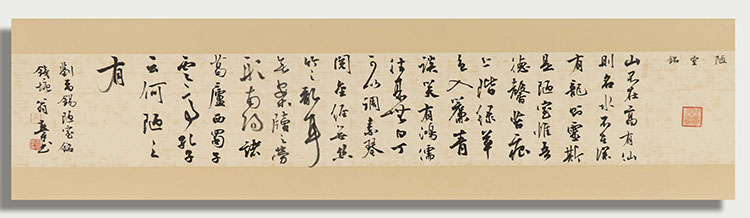 陋室銘
山不在高有仙
則名水不在深
有龍則靈斯
是陋室惟吾
德馨苔痕
上階綠草
色入簾青
談笑有鴻儒
往來無白丁
可以調素琴
閱金經無絲
竹之亂耳
無案牘之勞
形南陽諸
葛廬西蜀子
雲亭孔子
云何陋之
有
劉禹錫陋室銘
錢塘翁